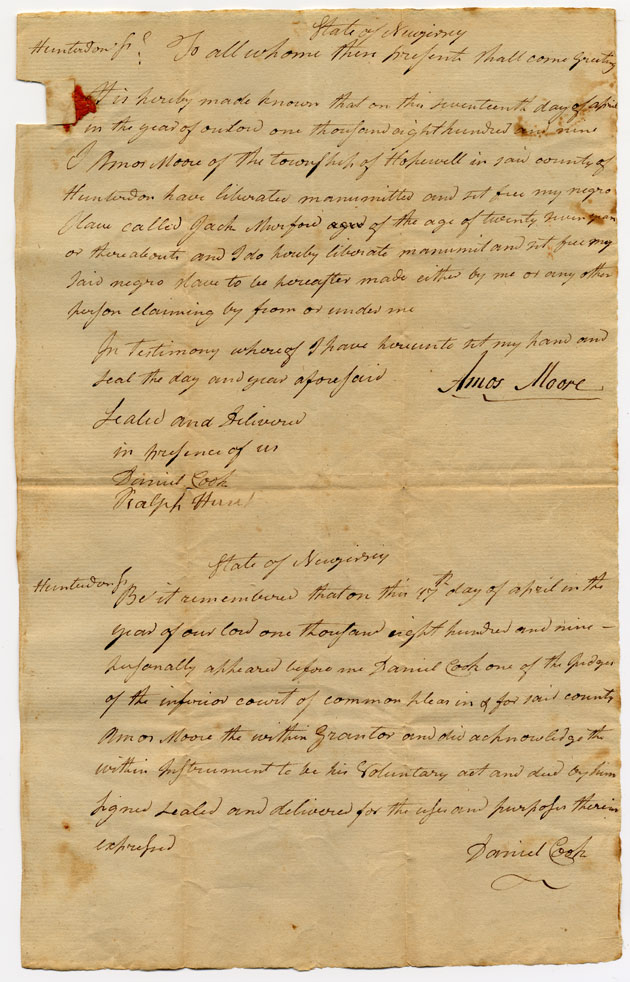 State of Newjersey
Hunterdon Ss. To all whome these presents shall come Greeting
It is hereby made known that on this seventeenth day of april
in the year of our lord one thousand eight hundred and nine
I Amos Moore of the township of Hopewell in said county of
Hunterdon have liberated manumitted and set free my negro
Slave called Jack Murford aged of the age of twenty seven years
or thereabouts and I do hereby liberate manumit and set free my
said negro slave to be hereafter made either by me or any other
person claiming by from or under me
In testimony whereof I have hereunto set my hand and
seal the day and year aforesaid Amos Moore
Sealed and Delivered
in presence of us
Daniel Cook
Ralph Hunt
State of Newjersey
Hunterdon Ss.
Be it remembered that on this 17th day of april in the
year of our lord one thousand eight hundred and nine –
personally appeared before me Daniel Cook one of the Judges
of the inferior court of common pleas in & for said county
Amos Moore the within Grantor and did acknowledge the
within Instrument to be his Voluntary act and deed by him
signed sealed and delivered for the uses and purposes therein
expressed Daniel Cook